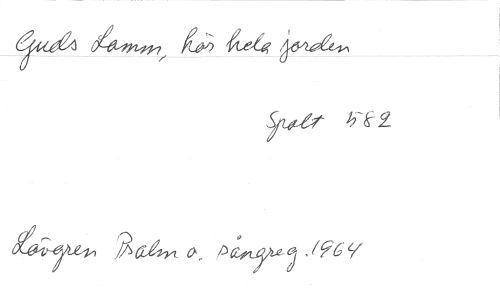 Guds Lamm, hör hela jorden
Spalt 582
Lövgren Psalm o. sångreg. 1964